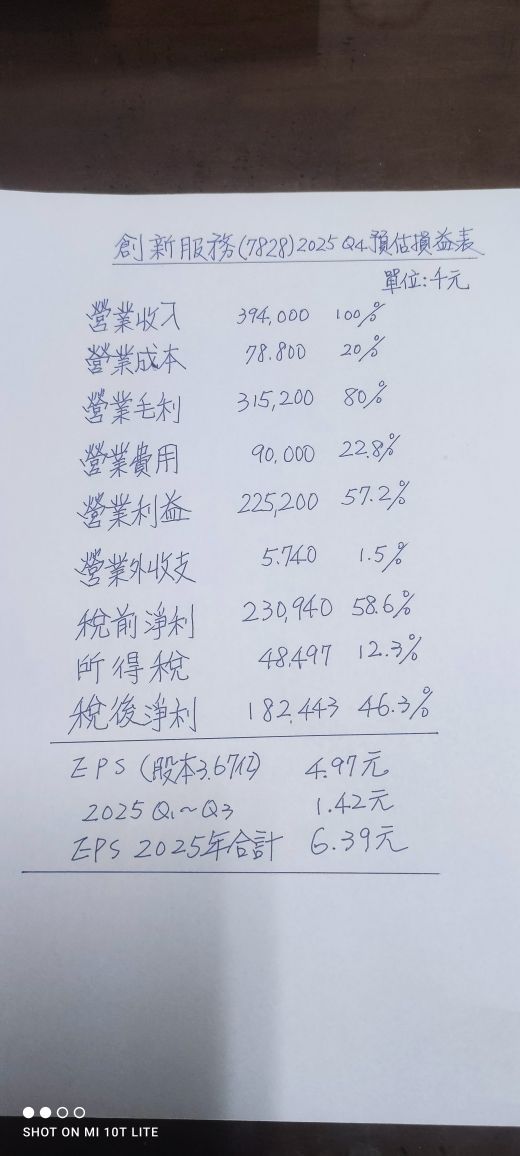 創新服務(7828)2025 Q4預估損益表
單位:千元
營業收入 394,000 100%
營業成本 78.800 20%
營業毛利 315,200 80%
營業費用 90,000 22.8%
營業利益 225,200 57.2%
營業外收支 5.740 1.5%
稅前淨利 230,940 58.6%
所得稅 48,497 12.3%
稅後淨利 182,443 46.3%
EPS (股本3.67億) 4.97元
2025 Q1~Q3 1.42元
EPS 2025年合計 6.39元
SHOT ON MI 10T LITE